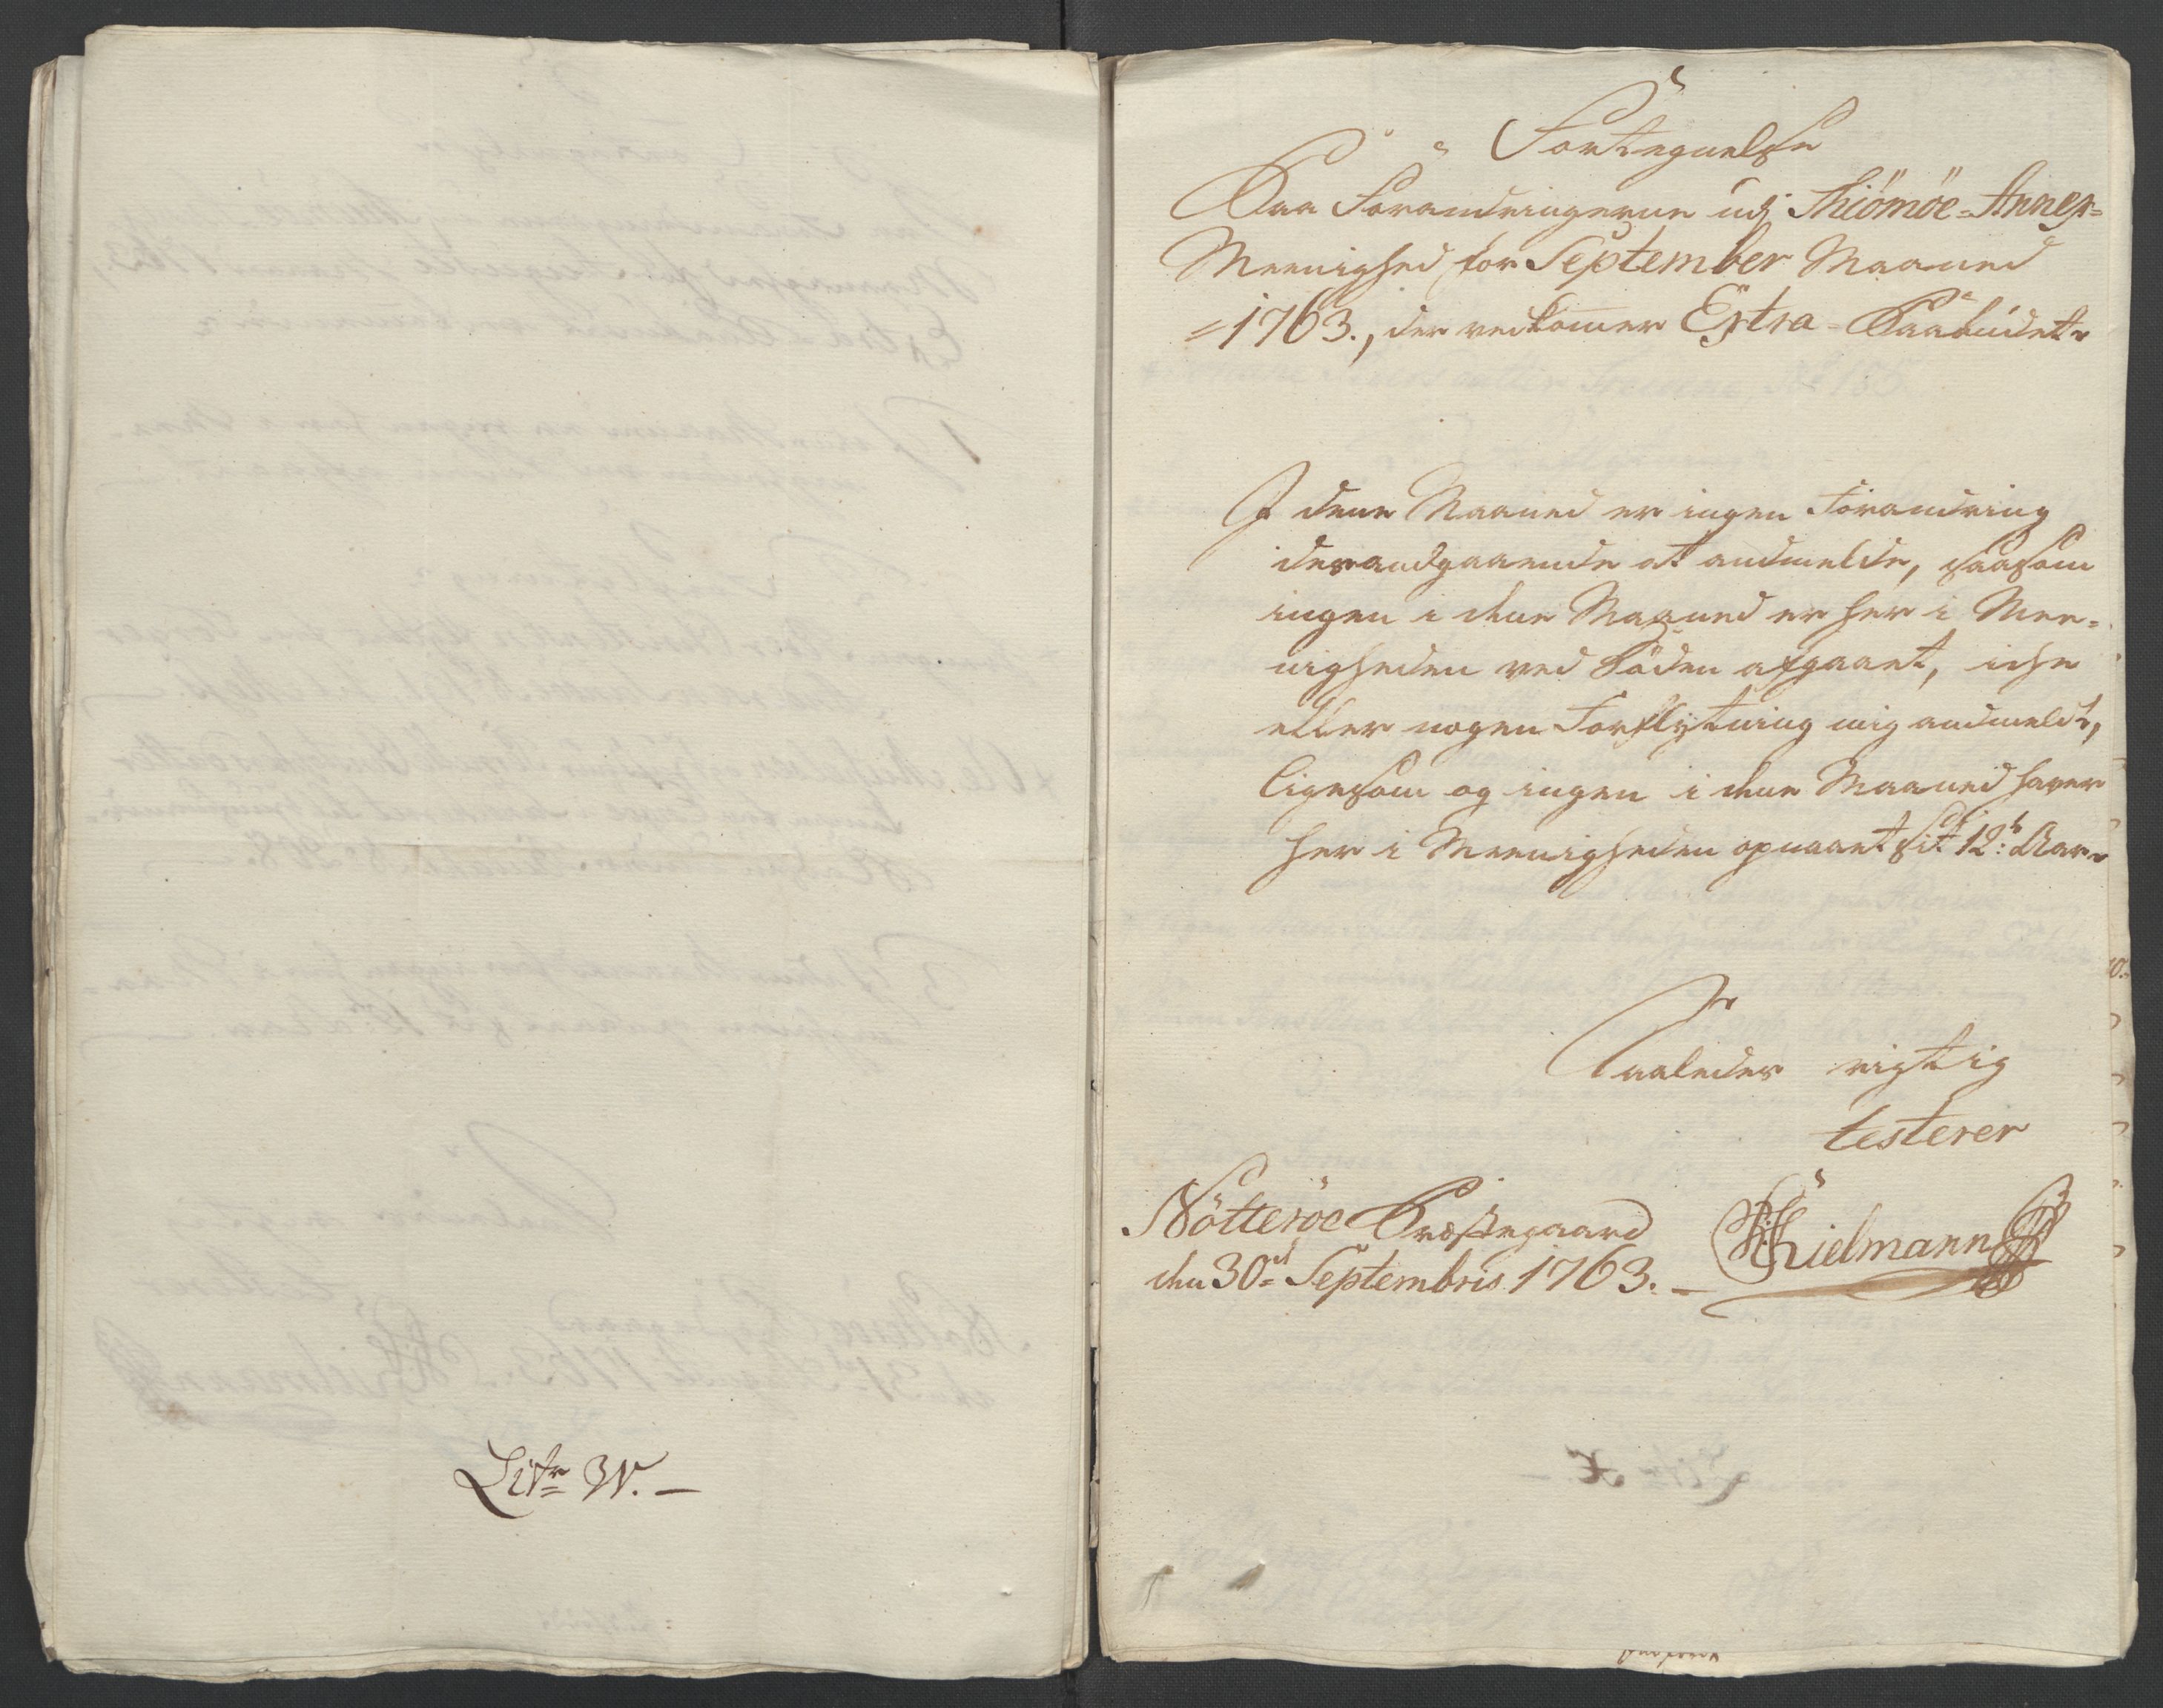 Litr W. –
Fortegnelse
Paa Forandringerne udj Thiömöe-Annex-
Meenighed for September Maaned
=1763., der vedkomer Extra-Paabudet.
I dene Maaned er ingen Forandring
derandgaaende at andmelde, saasom
ingen i dene Maaned er her i Mee-
nigheden ved Döden afgaaet, iche
eller nogen Forflytning mig andmeldt,
ligesom og ingen i dene Maaned haver
her i Meenigheden opnaaet sit 12te Aar.
Saaledes rigtig
testerer
Nötteröe Præstegaard
den 30te Septembris 1763. –
Kielmann